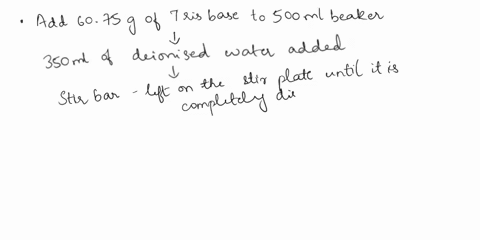 • Add 60.75 g of Tris base to 500 ml beaker
↓
350 ml of deionised water added
↓
Stir bar - left on the stir plate until it is
completely dis